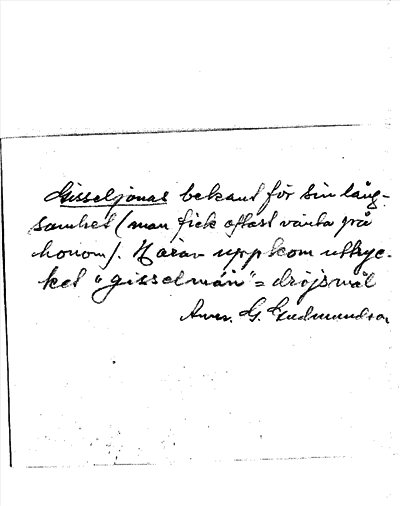 Gisseljonas bekant för sin lång-
samhet (man fick oftast vänta på
honom). Härav uppkom uttryc-
ket "gisselmån" = dröjsmål
G. Gudmundson